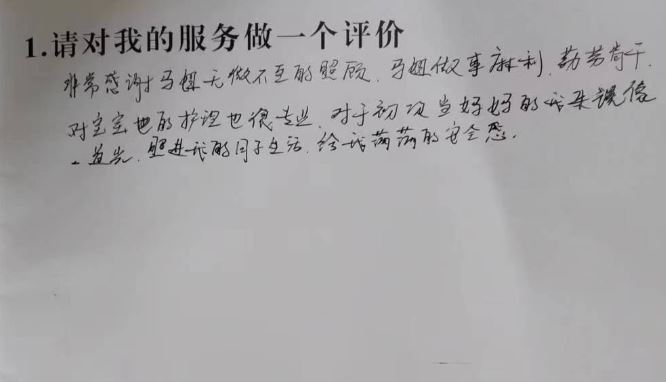 1.请对我的服务做一个评价
非常感谢马姐无微不至的照顾，马姐做事麻利，勤劳苦干，
对宝宝的护理也很专业，对于初次当妈妈的我来说像
一道光，照进我的月子生活，给我满满的安全感。